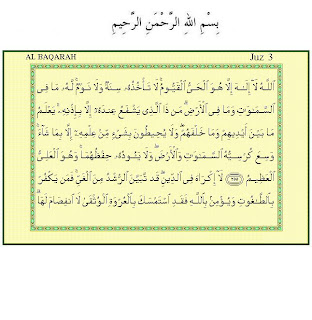 بِسْمِ اللهِ الرَّحْمَنِ الرَّحِيمِ
AL BAQARAH Juz 3
ٱللَّهُ لَآ إِلَـٰهَ إِلَّا هُوَ ٱلْحَىُّ ٱلْقَيُّومُ ۚ لَا تَأْخُذُهُۥ سِنَةٌ وَلَا نَوْمٌ ۚ لَّهُۥ مَا فِى
ٱلسَّمَـٰوَٰتِ وَمَا فِى ٱلْأَرْضِ ۗ مَن ذَا ٱلَّذِى يَشْفَعُ عِندَهُۥٓ إِلَّا بِإِذْنِهِۦ ۚ يَعْلَمُ
مَا بَيْنَ أَيْدِيهِمْ وَمَا خَلْفَهُمْ ۖ وَلَا يُحِيطُونَ بِشَىْءٍ مِّنْ عِلْمِهِۦٓ إِلَّا بِمَا شَآءَ ۚ
وَسِعَ كُرْسِيُّهُ ٱلسَّمَـٰوَٰتِ وَٱلْأَرْضَ ۖ وَلَا يَـُٔودُهُۥ حِفْظُهُمَا ۚ وَهُوَ ٱلْعَلِىُّ
ٱلْعَظِيمُ ﴿٢٥٥﴾ لَآ إِكْرَاهَ فِى ٱلدِّينِ ۖ قَد تَّبَيَّنَ ٱلرُّشْدُ مِنَ ٱلْغَىِّ ۚ فَمَن يَكْفُرْ
بِٱلطَّـٰغُوتِ وَيُؤْمِنۢ بِٱللَّهِ فَقَدِ ٱسْتَمْسَكَ بِٱلْعُرْوَةِ ٱلْوُثْقَىٰ لَا ٱنفِصَامَ لَهَا ۗ